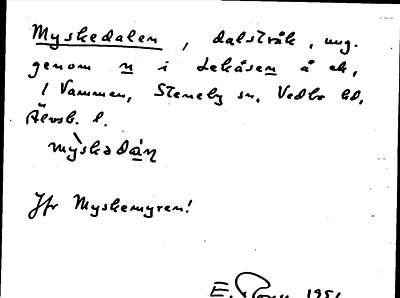 Myskedalen, dalstråk, ung.
genom n i Lekåsen å ek,
1 Vammen, Steneby sn, Vedbo hd,
Älvsb. l.
mỳskadáṇ
Jfr Myskemyren!
E. 1951